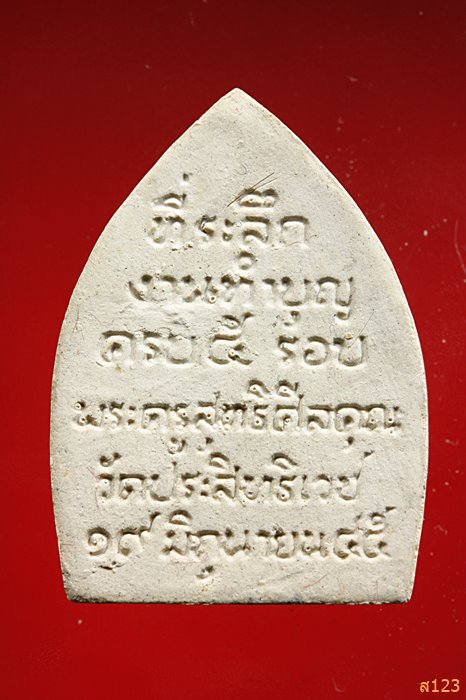 ที่ระลึก
งานทำบุญ
ครบ ๕ รอบ
พระครูสุทธิศีลคุณ
วัดประสิทธิเวช
๑๙ มิถุนายน ๔๕
ส123